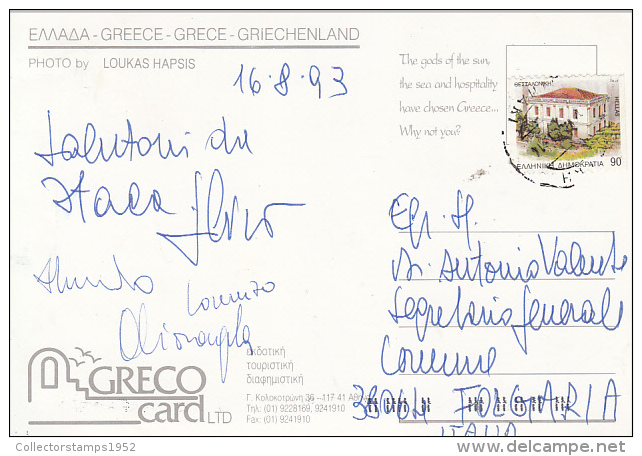 ΕΛΛΑΔΑ - GREECE - GRECE - GRiECHENLAND
PHOTO by LOUKAS HAPSIS
16·8·93
The gods of the sun,
the sea and hospitality
have chosen Greece...
Why not you?
ΘΕΣΣΑΛΟΝΙΚΗ
HELLAS
ΕΛΛΗΝΙΚΗ ΔΗΜΟΚΡΑΤΙΑ 90
Salutoni da
Itaca
Lorenzo
Egr. S.
Antonio Valente
Segretario Generale
Comune
38064 FOLGARIA
ITALIA
GRECO
card LTD
εκδοτική
τουριστική
διαφημιστική
Γ. Κολοκοτρώνη 36 -117 41
Τηλ: (01) 9228169, 9241910
Fax: (01) 9241910
Collectorstamps1952